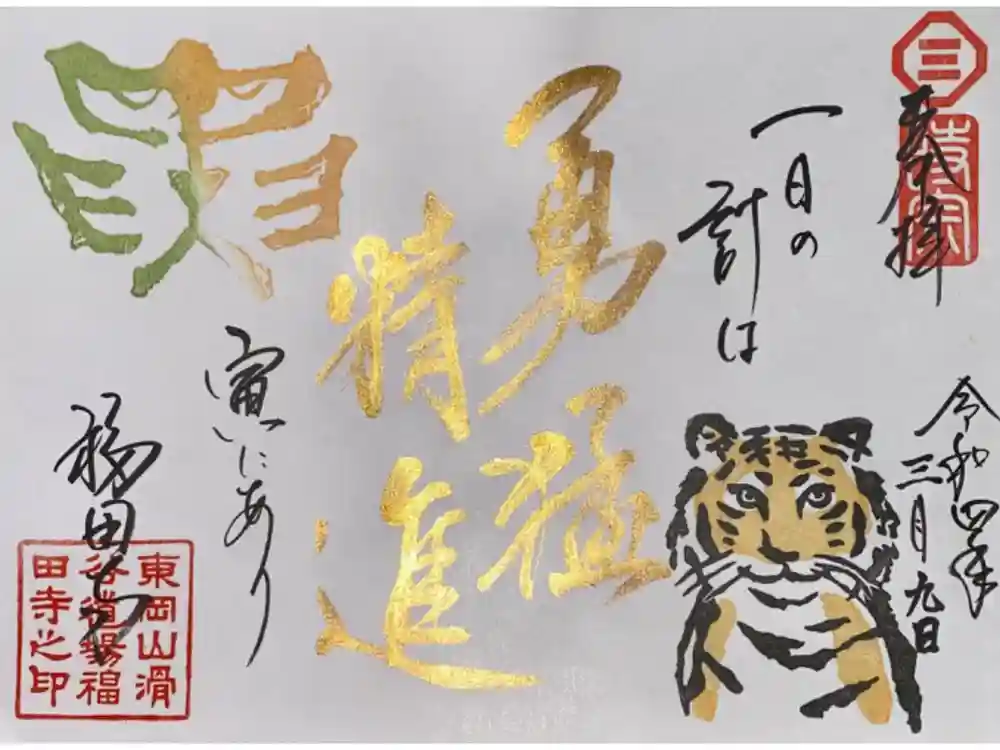 三
時宗
奉拝
令和四年
三月九日
一日の
計は
勇猛
精進
寅にあり
福田寺
東岡山滑
谷道場福
田寺之印